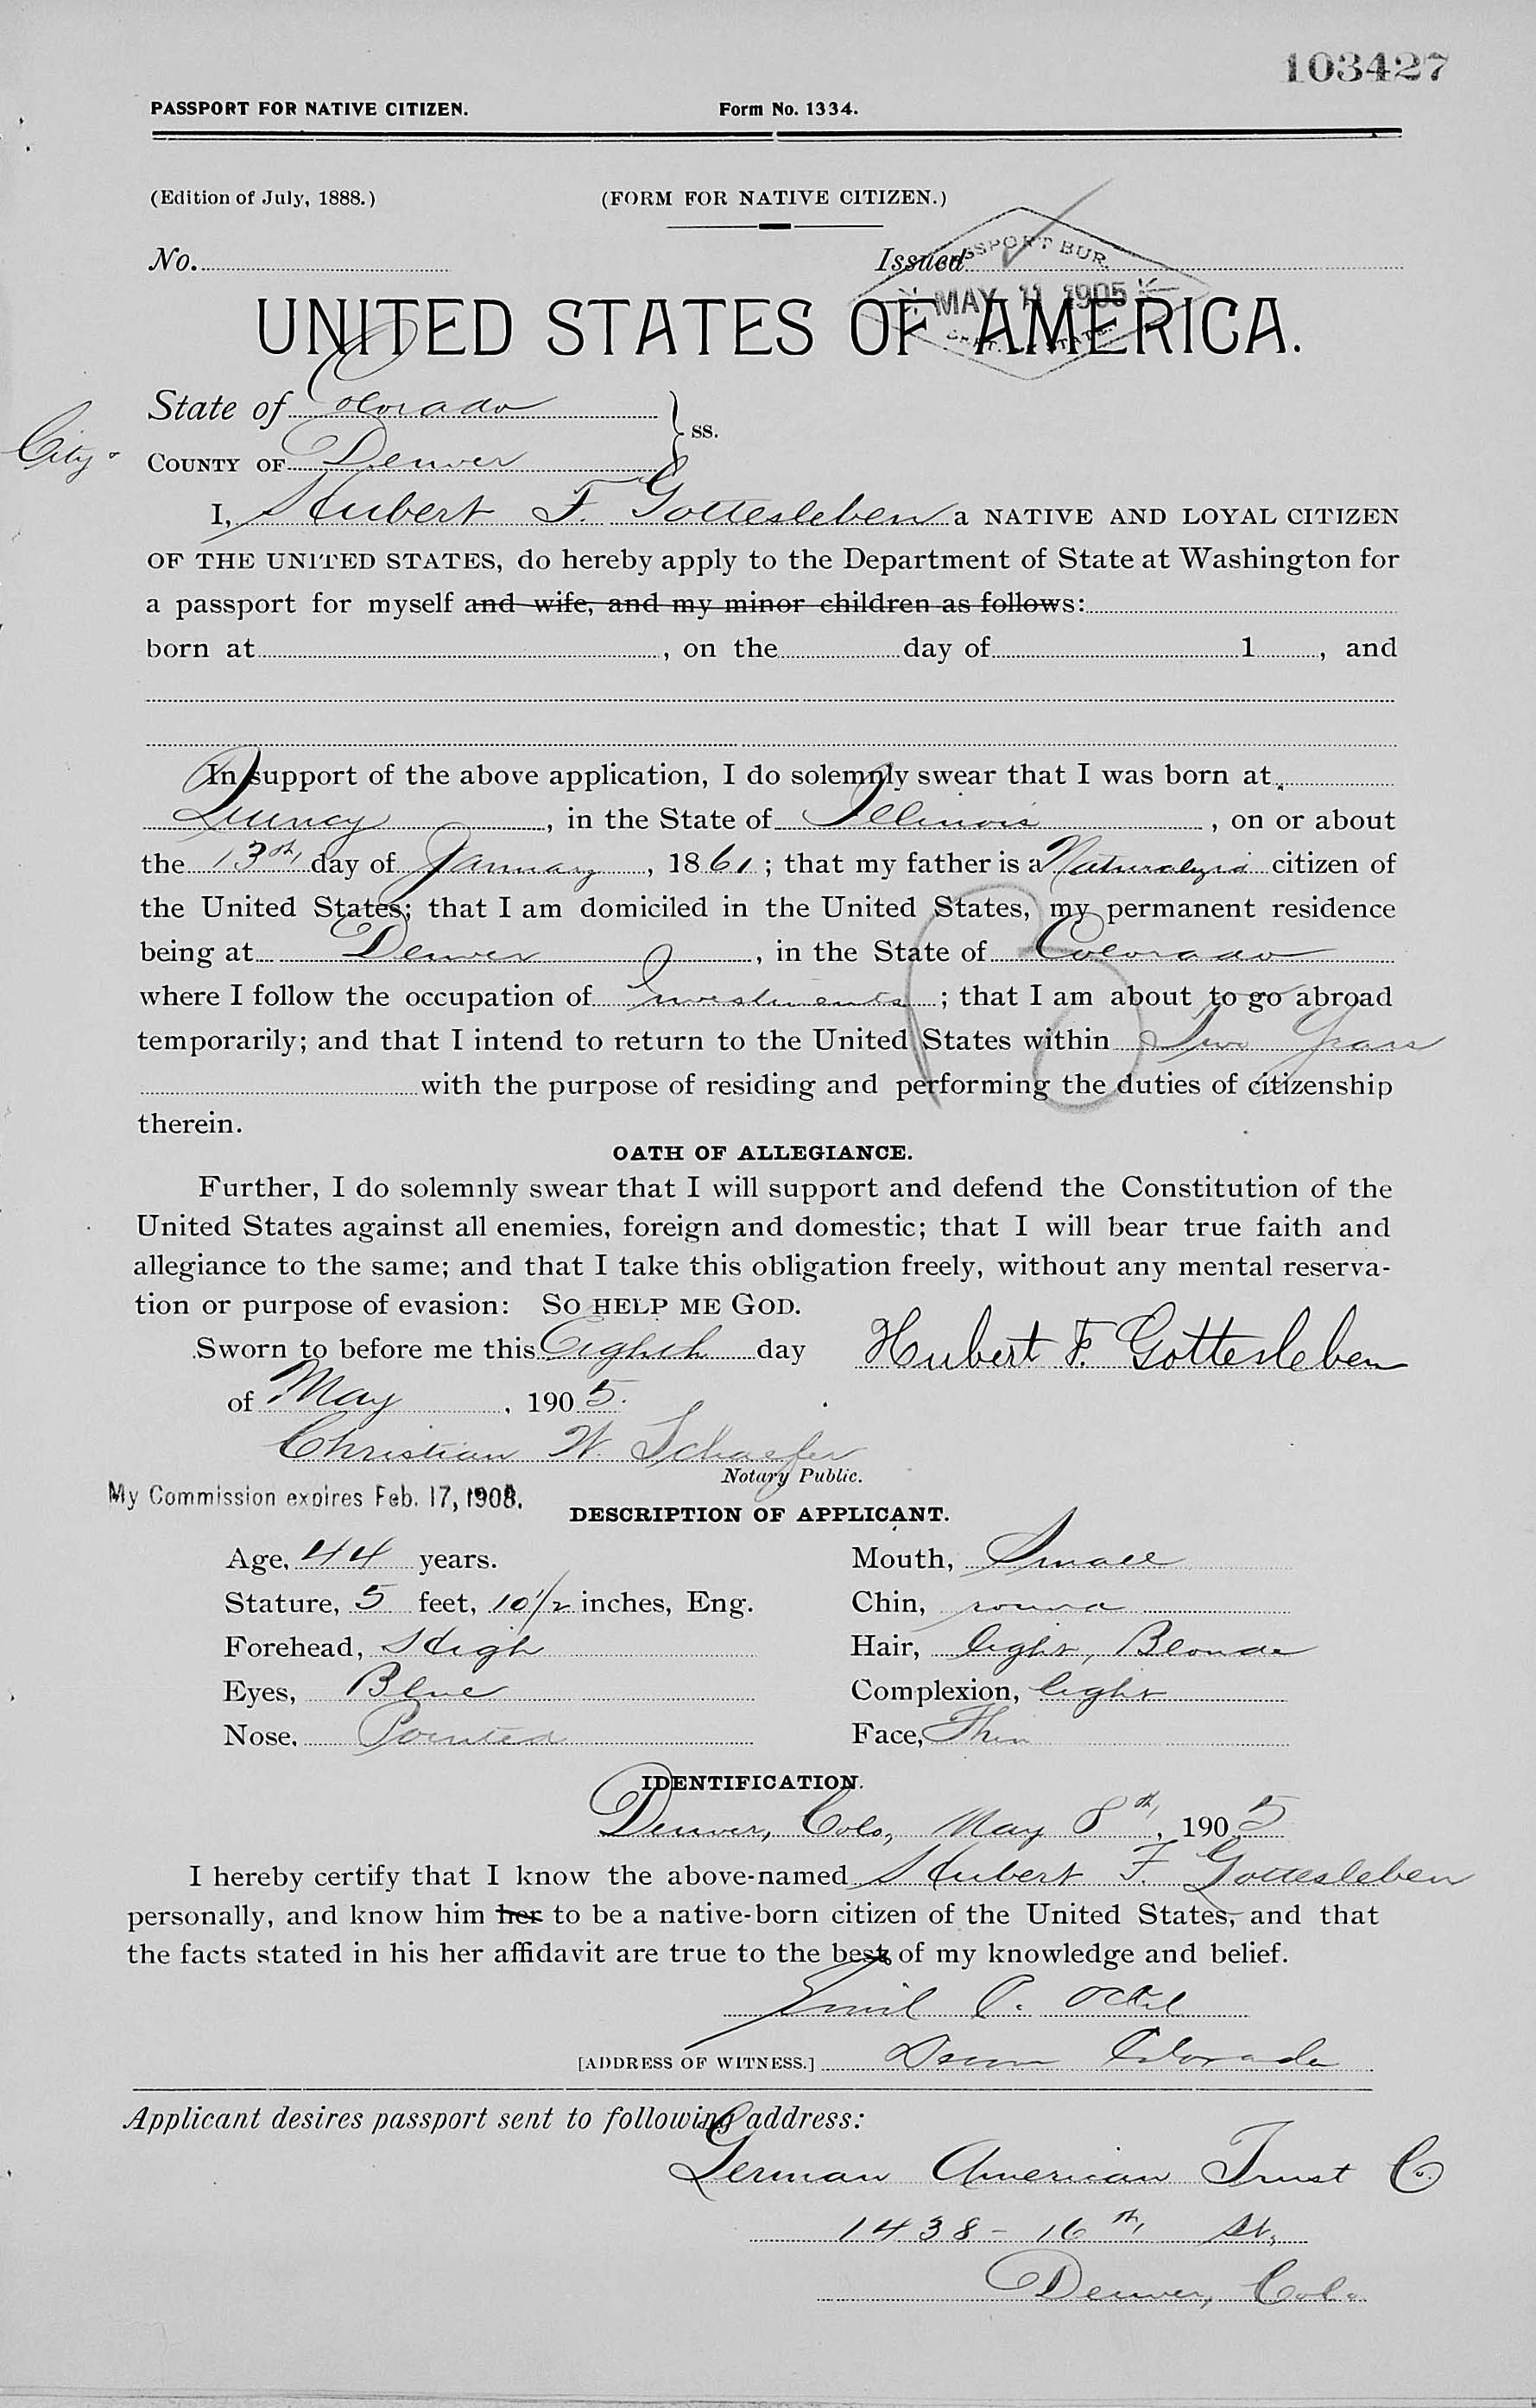 103427
PASSPORT FOR NATIVE CITIZEN. Form No. 1334.
(Edition of July, 1888.) (FORM FOR NATIVE CITIZEN.)
No. Issued
PASSPORT BUR.
MAY 11 1905
UNITED STATES OF AMERICA.
State of Colorado
ss.
City & COUNTY OF Denver
I, Hubert F. Gottesleben a NATIVE AND LOYAL CITIZEN
OF THE UNITED STATES, do hereby apply to the Department of State at Washington for
a passport for myself and wife, and my minor children as follows:
born at , on the day of 1 , and
In support of the above application, I do solemnly swear that I was born at
Quincy , in the State of Illinois , on or about
the 13th day of January , 1861 ; that my father is a Naturalyzed citizen of
the United States; that I am domiciled in the United States, my permanent residence
being at Denver , in the State of Colorado
where I follow the occupation of Investments ; that I am about to go abroad
temporarily; and that I intend to return to the United States within Two Years
with the purpose of residing and performing the duties of citizenship
therein.
OATH OF ALLEGIANCE.
Further, I do solemnly swear that I will support and defend the Constitution of the
United States against all enemies, foreign and domestic; that I will bear true faith and
allegiance to the same; and that I take this obligation freely, without any mental reserva-
tion or purpose of evasion: SO HELP ME GOD.
Sworn to before me this Eighth day Hubert F. Gottesleben
of May , 1905.
Christian W. Schaefer
Notary Public.
My Commission expires Feb. 17, 1908.
DESCRIPTION OF APPLICANT.
Age, 44 years. Mouth, Small
Stature, 5 feet, 10 1/2 inches, Eng. Chin, round
Forehead, High Hair, light, Blonde
Eyes, Blue Complexion, light
Nose, Pointed Face, Thin
IDENTIFICATION.
Denver, Colo, May 8th, 1905
I hereby certify that I know the above-named Hubert F. Gottesleben
personally, and know him her to be a native-born citizen of the United States, and that
the facts stated in his her affidavit are true to the best of my knowledge and belief.
Emil P.
[ADDRESS OF WITNESS.] Denver Colorado
Applicant desires passport sent to following address:
German American Trust Co.
1438 - 16th St,
Denver, Colo.